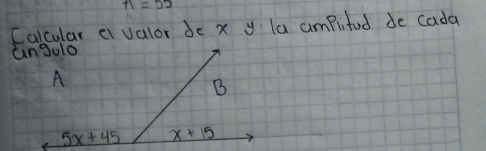 n = 55
Calcular el valor de x y la amplitud de cada
ángulo
A
B
5x+45
x+15